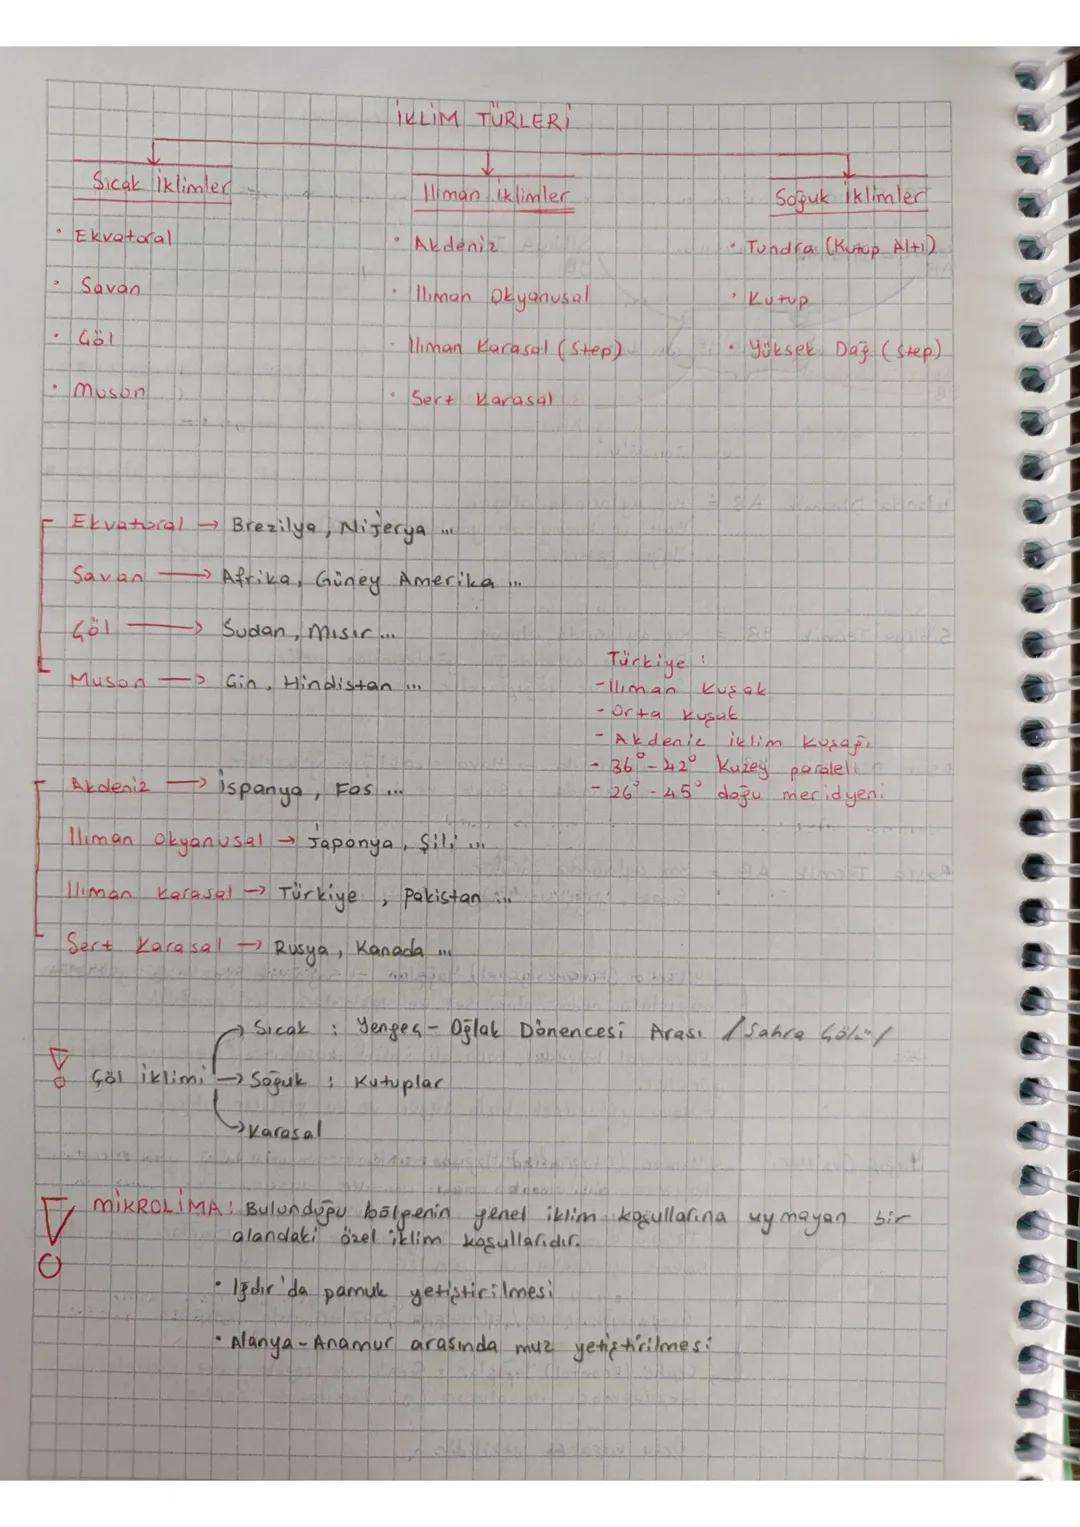 İKLİM TÜRLERİ
Sıcak İklimler
• Ekvatoral
• Savan
• Çöl
• Muson
Iliman iklimler
• Akdeniz
• Iliman Okyanusal
• Iliman Karasal (Step)
• Sert Karasal
Soğuk İklimler
• Tundra (Kutup Altı)
• Kutup
• Yüksek Dağ (Step)
Ekvatoral → Brezilya, Nijerya ...
Savan → Afrika, Güney Amerika ...
Çöl → Sudan, Mısır ...
Muson → Çin, Hindistan ...
Türkiye :
- Iliman Kuşak
- Orta Kuşak
- Akdeniz iklim Kuşağı
- 36° - 42° Kuzey paraleli
- 26° - 45° doğu meridyeni
Akdeniz → İspanya, Fas ...
Iliman Okyanusal → Japonya, Şili ...
Iliman Karasal → Türkiye, Pakistan ...
Sert Karasal → Rusya, Kanada ...
→ Sıcak : Yengeç - Oğlak Dönencesi Arası / Sahra Çölü /
Çöl iklimi → Soğuk : Kutuplar
→ Karasal
MİKROLİMA : Bulunduğu bölgenin genel iklim koşullarına uymayan bir
alandaki özel iklim koşullarıdır.
• Iğdır'da pamuk yetiştirilmesi
• Alanya - Anamur arasında muz yetiştirilmesi